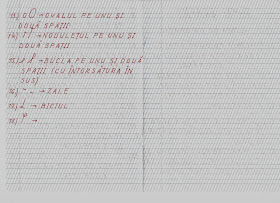 13.) oO → OVALUL PE UNU ȘI
DOUĂ SPAȚII
14.) → NODULEȚUL PE UNU ȘI
DOUĂ SPAȚII
15.) → BUCLA PE UNU ȘI DOUĂ
SPAȚII (CU ÎNTORSĂTURA ÎN
SUS)
16.) ~ → ZALE
→ BICIUL
→